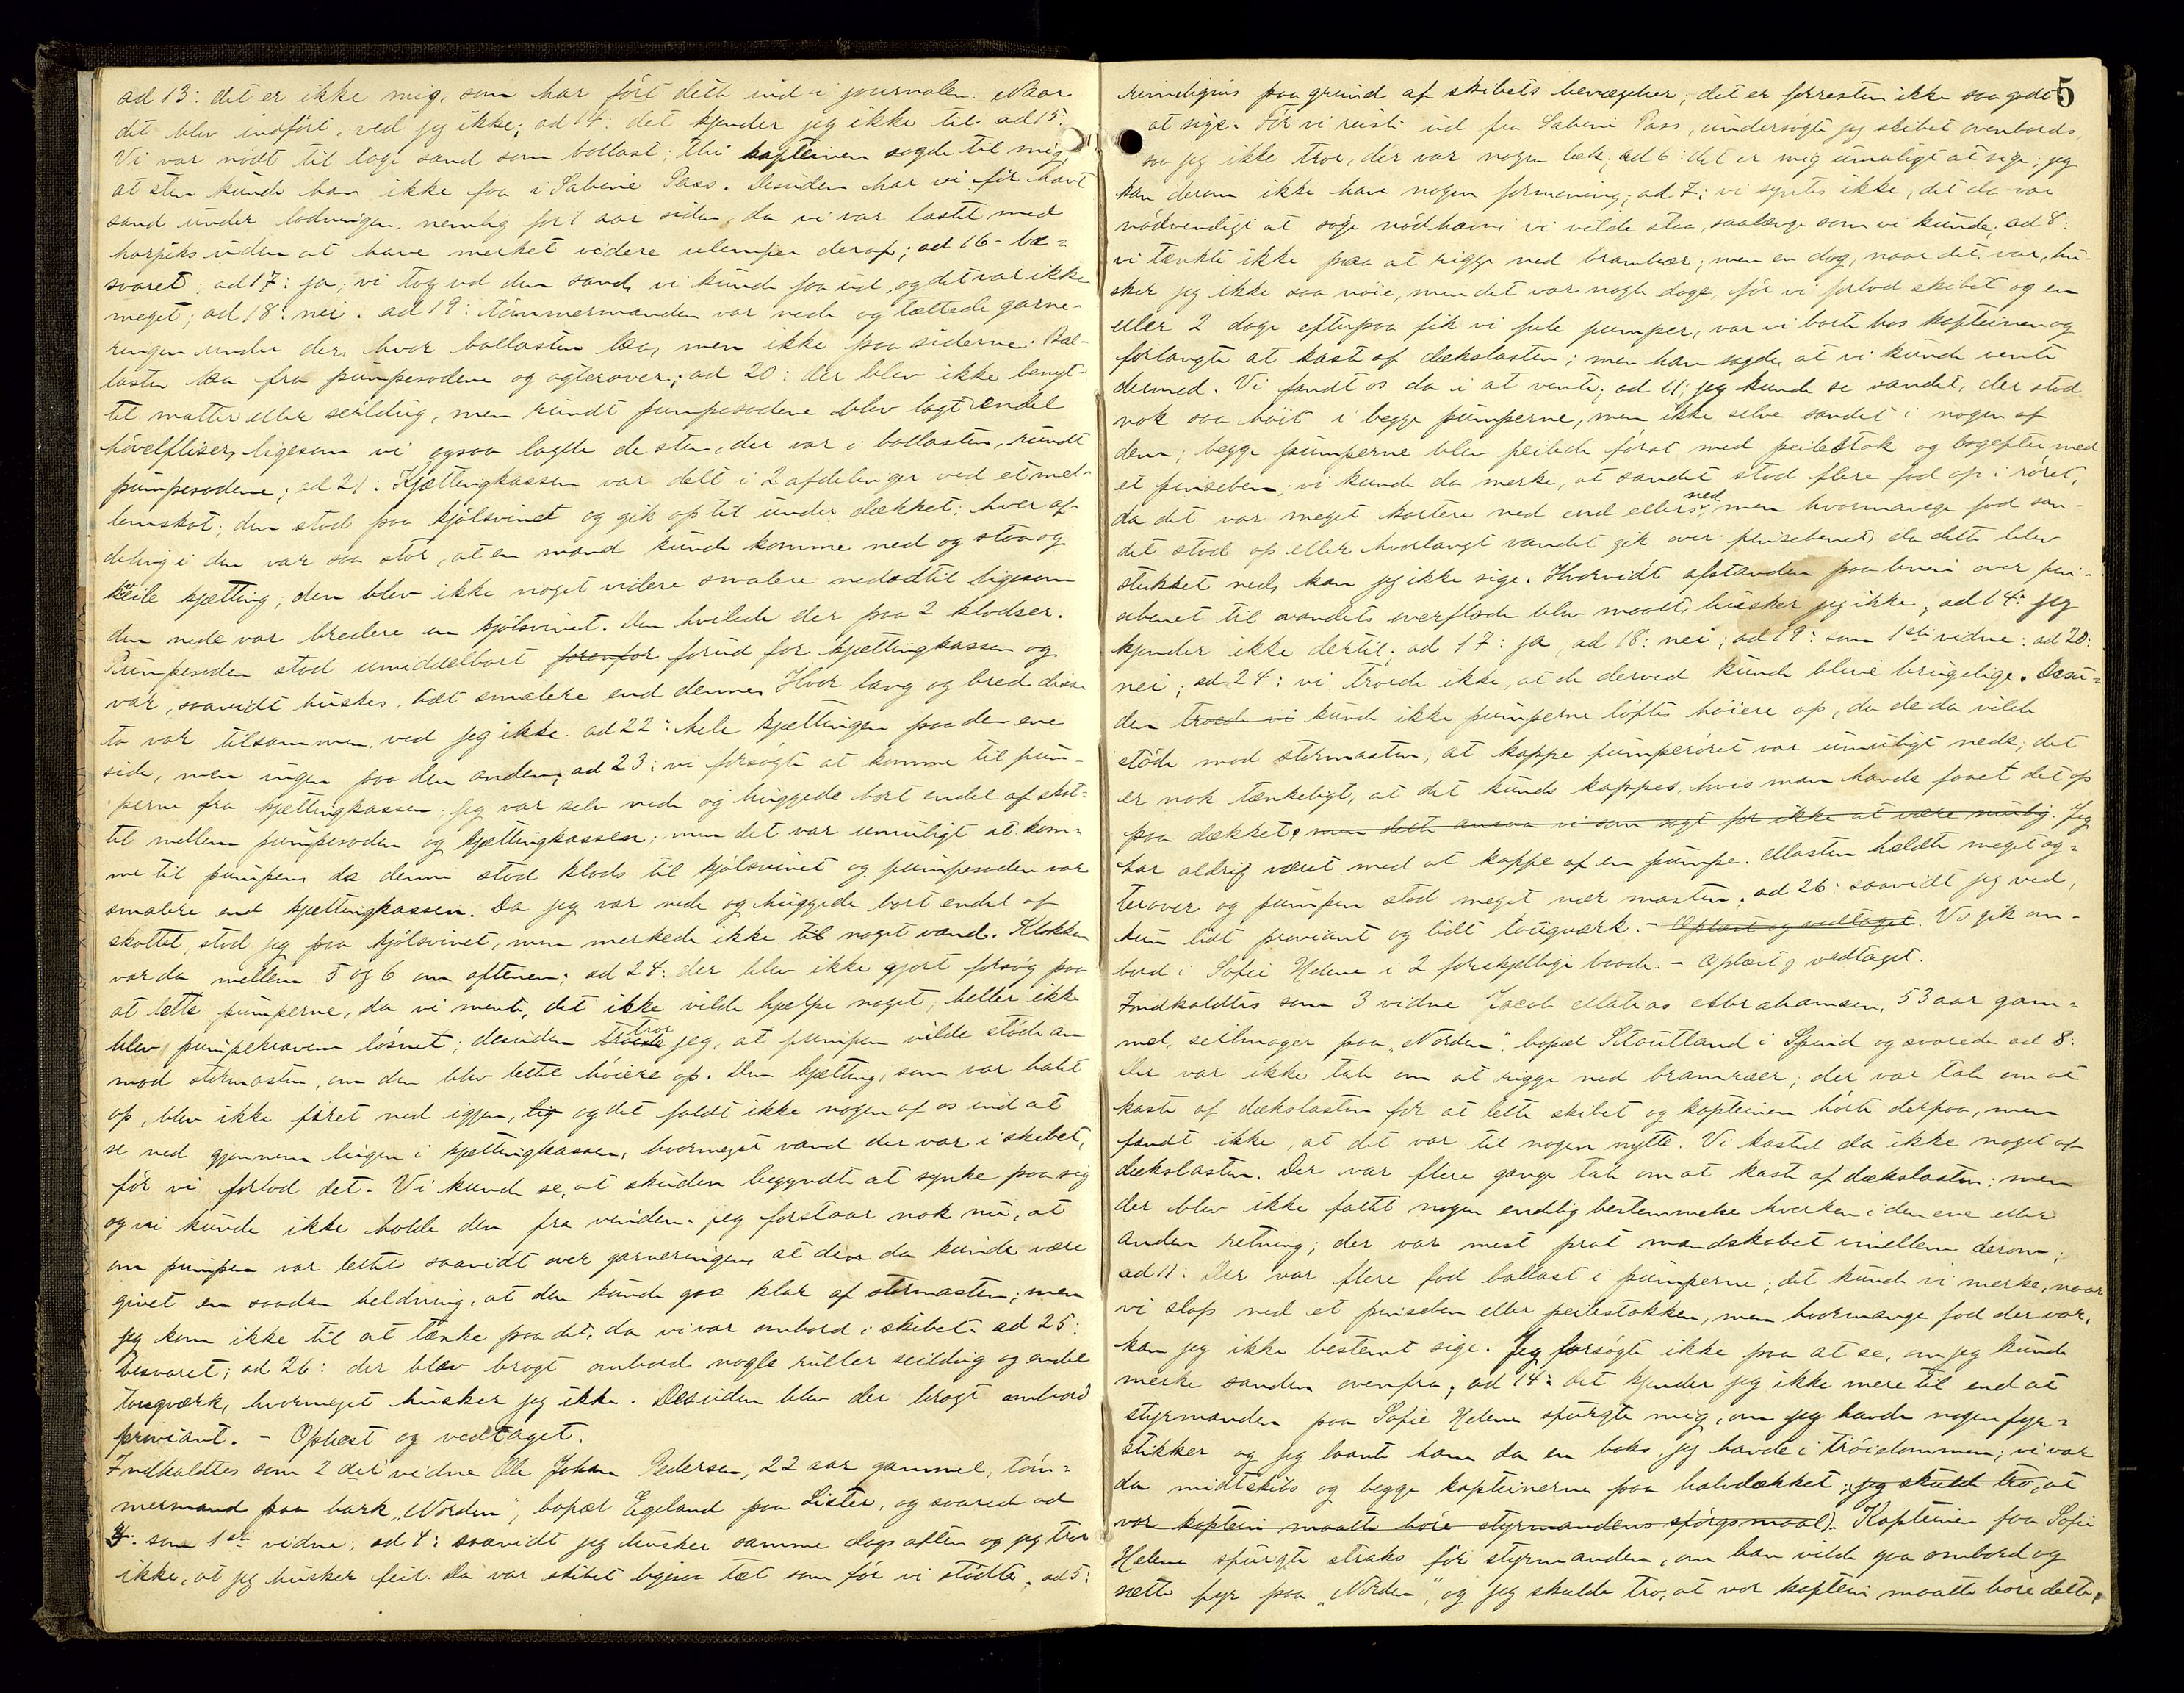 ad 13: det er ikke mig, som har ført dette ind i journalen. Naar
det blev indført, ved jeg ikke; ad 14: det kjender jeg ikke til. ad 15:
Vi var nødt til tage sand som ballast; thi kapteinen sagde til mig,
at sten kunde han ikke faa i Sabine Pass. Desuden har vi før havt
sand under ladningen, nemlig for 1 aar siden, da vi var lastet med
harpiks uden at have merket videre ulemper deraf; ad 16 - be-
svaret. ad 17: ja; vi tog ud den sand, vi kunde faa ud, og det var ikke
meget; ad 18: nei. ad 19: tømmermanden var nede og tættede garne-
ringen under der, hvor ballasten laa, men ikke paa siderne. Bal-
lasten laa fra pumpesoden og agterover; ad 20: der blev ikke benyt-
tet matter eller seildug, men rundt pumpesodene blev lagt endel
høvelfliser, ligesom vi ogsaa lagde de sten, der var i ballasten, rundt
pumpesodene; ad 21: Kjættingkassen var delt i 2 afdelinger ved et mel-
lemskot; den stod paa kjølsvinet og gik op til under dækket; hver af-
deling i den var saa stor, at en mand kunde komme ned og staa og
kveile kjætting; den blev ikke noget videre smalere nedadtil ligesom
den nede var bredere en kjølsvinet. Den hvilede der paa 2 klodser.
Pumpesoden stod umiddelbart forenfor forud for kjættingkassen og
var, saavidt huskes, lidt smalere end denne. Hvor lang og bred disse
to var tilsammen, ved jeg ikke. ad 22: hele kjættingen paa den ene
side, men ingen paa den anden; ad 23: vi forsøgte at komme til pum-
perne fra kjættingkassen. jeg var selv nede og huggede bort endel af skot-
tet mellem pumpesoden og kjættingkassen; men det var umuligt at kom-
me til pumpen, da denne stod klods til kjølsvinet og pumpesoden var
smalere end kjættingkassen. Da jeg var nede og huggede bort endel af
skottet, stod jeg paa kjølsvinet, men merkede ikke til noget vand. Klokken
var da mellem 5 og 6 om aftenen; ad 24: der blev ikke gjort forsøg paa
at lette pumperne, da vi mente, det ikke vilde hjelpe noget, heller ikke
blev pumpekraven løsnet; desuden troede tror jeg, at pumpen vilde støde an
mod stormasten, om den blev lettet høiere op. Den kjætting, som var halet
op, blev ikke firet ned igjen, lig og det faldt ikke nogen af os ind at
se ned gjennem lugen i kjættingkassen, hvormeget vand der var i skibet,
før vi forlod det. Vi kunde se, at skuden begyndte at synke paa sig
og vi kunde ikke holde den fra vinden. jeg forstaar nok nu, at
om pumpen var lettet saavidt over garneringen at den da kunde være
givet en saadan heldning, at den kunde gaa klar af stormasten; men
jeg kom ikke til at tænke paa det, da vi var ombord i skibet. ad 25:
besvaret; ad 26: der blev bragt ombord nogle ruller seildug og endel
tougværk, hvormeget husker jeg ikke. Desuden blev der bragt ombord
proviant. - Oplæst og vedtaget.
Indkaldtes som 2det vidne Ole Johan Pedersen, 22 aar gammel, tøm-
mermand paa bark „Norden", bopæl Egeland paa Lister, og svared ad
3: som 1ste vidne; ad 4: saavidt jeg husker samme dags aften og jeg tror
ikke, at jeg husker feil. Da var skibet ligesaa tæt som før vi stødte; ad 5:
5
rimeligvis paa grund af skibets bevægelser; det er forresten ikke saa godt
at sige. Før vi reiste ud fra Sabine Pass, undersøgte jeg skibet ovenbords,
saa jeg ikke tror, der var nogen læk; ad 6: det er mig umuligt at sige; jeg
kan derom ikke have nogen formening; ad 7: vi syntes ikke, det da var
nødvendigt at søge nødhavn; vi vilde staa, saalænge som vi kunde; ad 8:
vi tænkte ikke paa at rigge ned bramræer; men en dag, naar det var, hu-
sker jeg ikke saa nøie, men det var nogle dage, før vi forlod skibet og en
eller 2 dage efterpaa fik vi fule pumper, var vi borte hos kapteinen og
forlangte at kaste af dækslasten; men han sagde, at vi kunde vente
dermed. Vi fandt os da i at vente; ad 11: jeg kunde se vandet, der stod
nok saa høit i begge pumperne, men ikke selve sandet i nogen af
dem; begge pumperne blev peilede først med peilestok og bagefter med
et peniseben; vi kunde da merke, at sandet stod flere fod op i røret,
da det var meget kortere ned end ellers ned, men hvormange fod san-
det stod op eller hvorlangt vandet gik over penisebenet, da dette blev
stukket ned, kan jeg ikke sige. Hvorvidt afstanden paa linen over pen-
isebenet til vandets overflade blev maalt, husker jeg ikke; ad 14: jeg
kjender ikke dertil; ad 17: ja, ad 18: nei; ad 19: som 1ste vidne; ad 20:
nei; ad 24: vi troede ikke, at de derved kunde blive brugelige. Desu-
den troede vi kunde ikke pumperne løftes høiere op, da de da vilde
støde mod stormasten; at kappe pumperøret var umuligt nede; det
er nok tænkeligt, at det kunde kappes, hvis man havde faaet det op
paa dækket, men dette ansaa vi som sagt for ikke at være mulig. Jeg
har aldrig været med at kappe af en pumpe. Masten heldte meget ag-
terover og pumpen stod meget nær masten; ad 26: saavidt jeg ved,
kun lidt proviant og lidt tougværk. - Oplæst og vedtaget. Vi gik om-
bord i Sofie Helene i 2 forskjellige baade. - Oplæst og vedtaget.
Indkaldtes som 3 vidne Jacob Matias Abrahamsen, 53 aar gam-
mel, seilmager paa „Norden". bopæl Stoutland i Spind og svarede ad 8:
Der var ikke tale om at rigge ned bramræer; der var tale om at
kaste af dækslasten for at lette skibet og kapteinen hørte derpaa, men
fandt ikke, at det var til nogen nytte. Vi kasted da ikke noget af
dækslasten. Der var flere gange tale om at kaste af dækslasten; men
der blev ikke fattet nogen endelig bestemmelse hverken i den ene eller
anden retning; der var mest prat mandskabet imellem derom;
ad 11: Der var flere fod ballast i pumperne; det kunde vi merke, naar
vi slap ned et peniseben eller peilestokken, men hvormange fod der var,
kan jeg ikke bestemt sige. Jeg forsøgte ikke paa at se, om jeg kunde
merke sanden ovenfra; ad 14: det kjender jeg ikke mere til end at
styrmanden paa Sofie Helene spurgte mig, om jeg havde nogen fyr-
stikker og jeg laante ham da en boks, jeg havde i trøielommen; vi var
da midtskibs og begge kapteinerne paa halvdækket; jeg skulde tro, at
vor kaptein maatte høre styrmandens spørgsmaal). Kapteinen paa Sofie
Helene spurgte straks før styrmanden, om han vilde gaa ombord og
sætte fyr paa „Norden", og jeg skulde tro, at vor kaptein maatte høre dette,